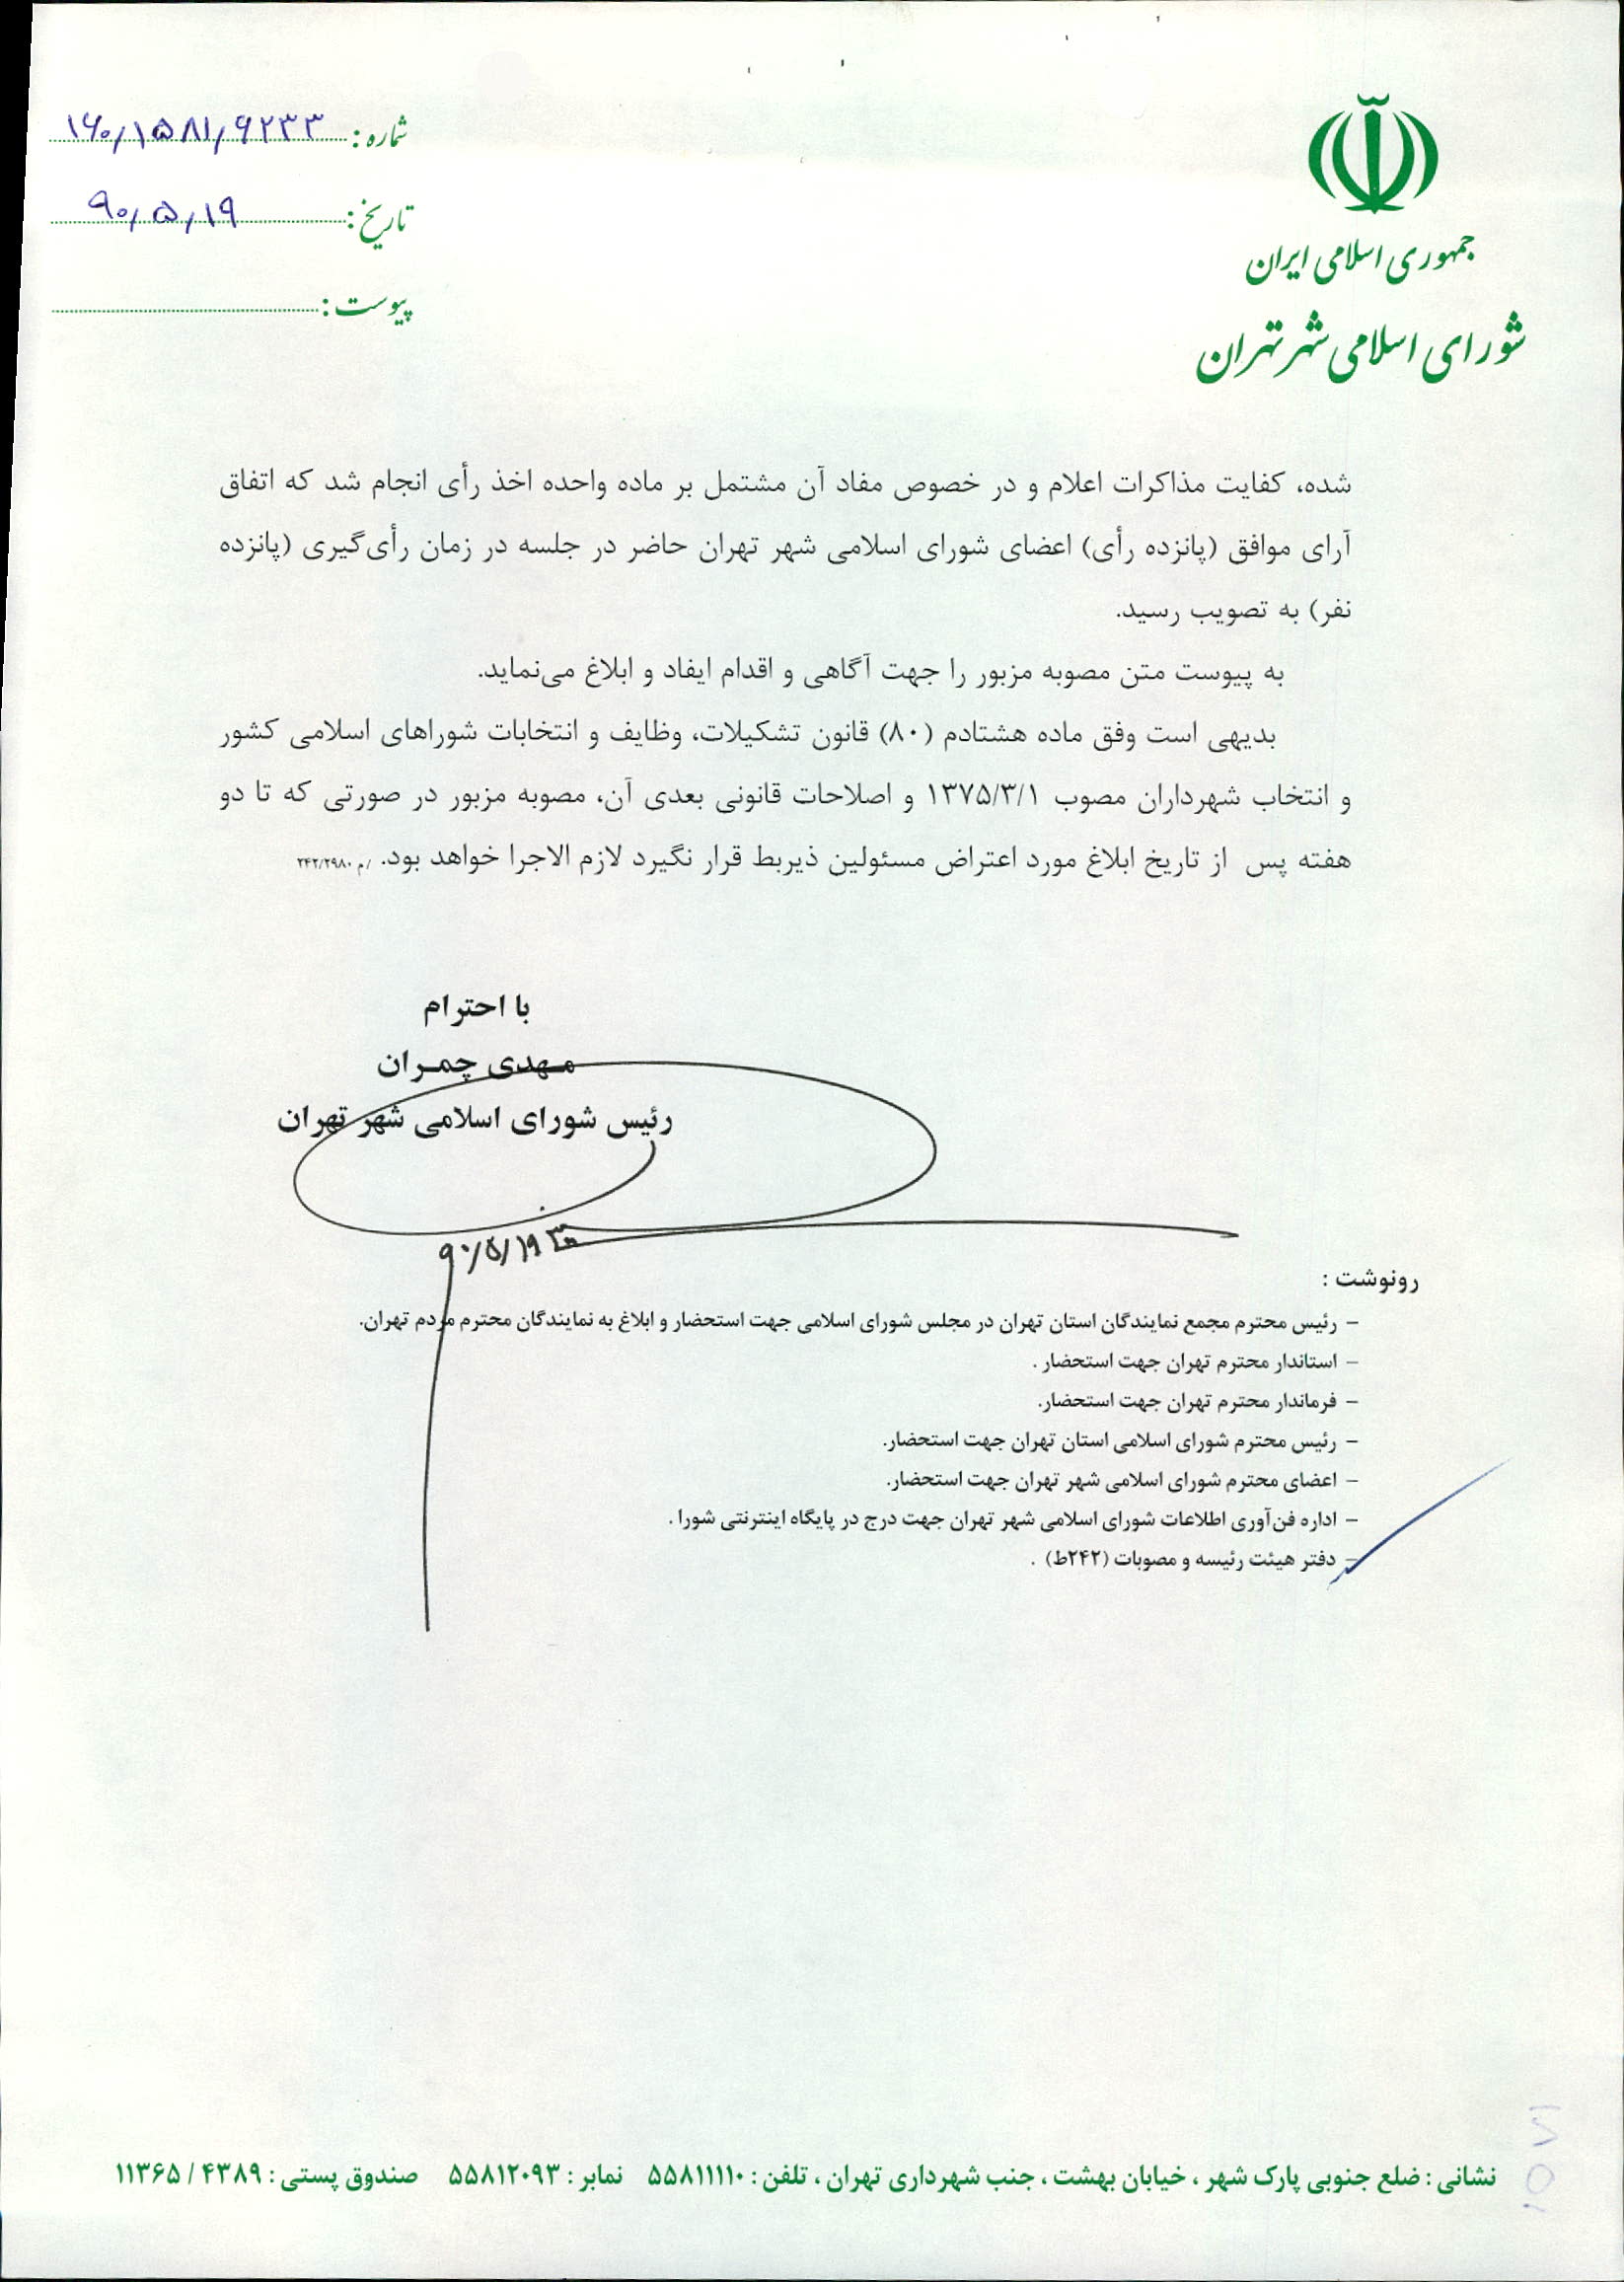 جمهوری اسلامی ایران
شورای اسلامی شهر تهران
شماره: ۱۶۰/۱۵۸۱/۶۲۳۳
تاریخ: ۹۰/۵/۱۹
پیوست:
شده، کفایت مذاکرات اعلام و در خصوص مفاد آن مشتمل بر ماده واحده اخذ رأی انجام شد که اتفاق
آرای موافق (پانزده رأی) اعضای شورای اسلامی شهر تهران حاضر در جلسه در زمان رأی‌گیری (پانزده
نفر) به تصویب رسید.
به پیوست متن مصوبه مزبور را جهت آگاهی و اقدام ایفاد و ابلاغ می‌نماید.
بدیهی است وفق ماده هشتادم (۸۰) قانون تشکیلات، وظایف و انتخابات شوراهای اسلامی کشور
و انتخاب شهرداران مصوب ۱۳۷۵/۳/۱ و اصلاحات قانونی بعدی آن، مصوبه مزبور در صورتی که تا دو
هفته پس از تاریخ ابلاغ مورد اعتراض مسئولین ذیربط قرار نگیرد لازم الاجرا خواهد بود. /م ۲۴۲/۲۹۸۰
با احترام
مهدی چمران
رئیس شورای اسلامی شهر تهران
۹۰/۵/۱۹
رونوشت :
– رئیس محترم مجمع نمایندگان استان تهران در مجلس شورای اسلامی جهت استحضار و ابلاغ به نمایندگان محترم مردم تهران.
– استاندار محترم تهران جهت استحضار .
– فرماندار محترم تهران جهت استحضار.
– رئیس محترم شورای اسلامی استان تهران جهت استحضار.
– اعضای محترم شورای اسلامی شهر تهران جهت استحضار.
– اداره فن‌آوری اطلاعات شورای اسلامی شهر تهران جهت درج در پایگاه اینترنتی شورا .
– دفتر هیئت رئیسه و مصوبات (۲۴۲ط) .
نشانی : ضلع جنوبی پارک شهر ، خیابان بهشت ، جنب شهرداری تهران ، تلفن : ۵۵۸۱۱۱۱۰ نمابر : ۵۵۸۱۲۰۹۳ صندوق پستی : ۴۳۸۹ / ۱۱۳۶۵